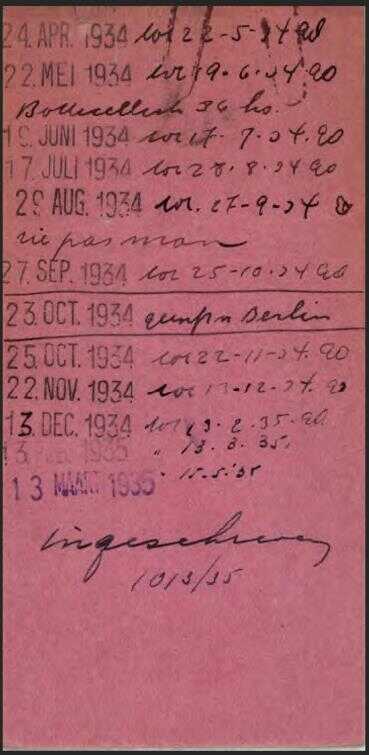 24. APR. 1934 tot 22-5-34 90
22. MEI 1934 tot 19-6-34 90
36 ho.
19. JUNI 1934 tot 17-7-34. 90
17. JULI 1934 tot 28-8-34 90
29 AUG. 1934 tot. 27-9-34
zie pas man
27. SEP. 1934 tot 25-10-34 90
23. OCT. 1934 Berlin
25. OCT. 1934 tot 22-11-34. 90
22. NOV. 1934 tot 13-12-34. 90
13. DEC. 1934 tot 13-2-35-90
13 1935 " 13.3.35.
13 MAART 1935 " 15.5.'35
ingeschreven
1013/35